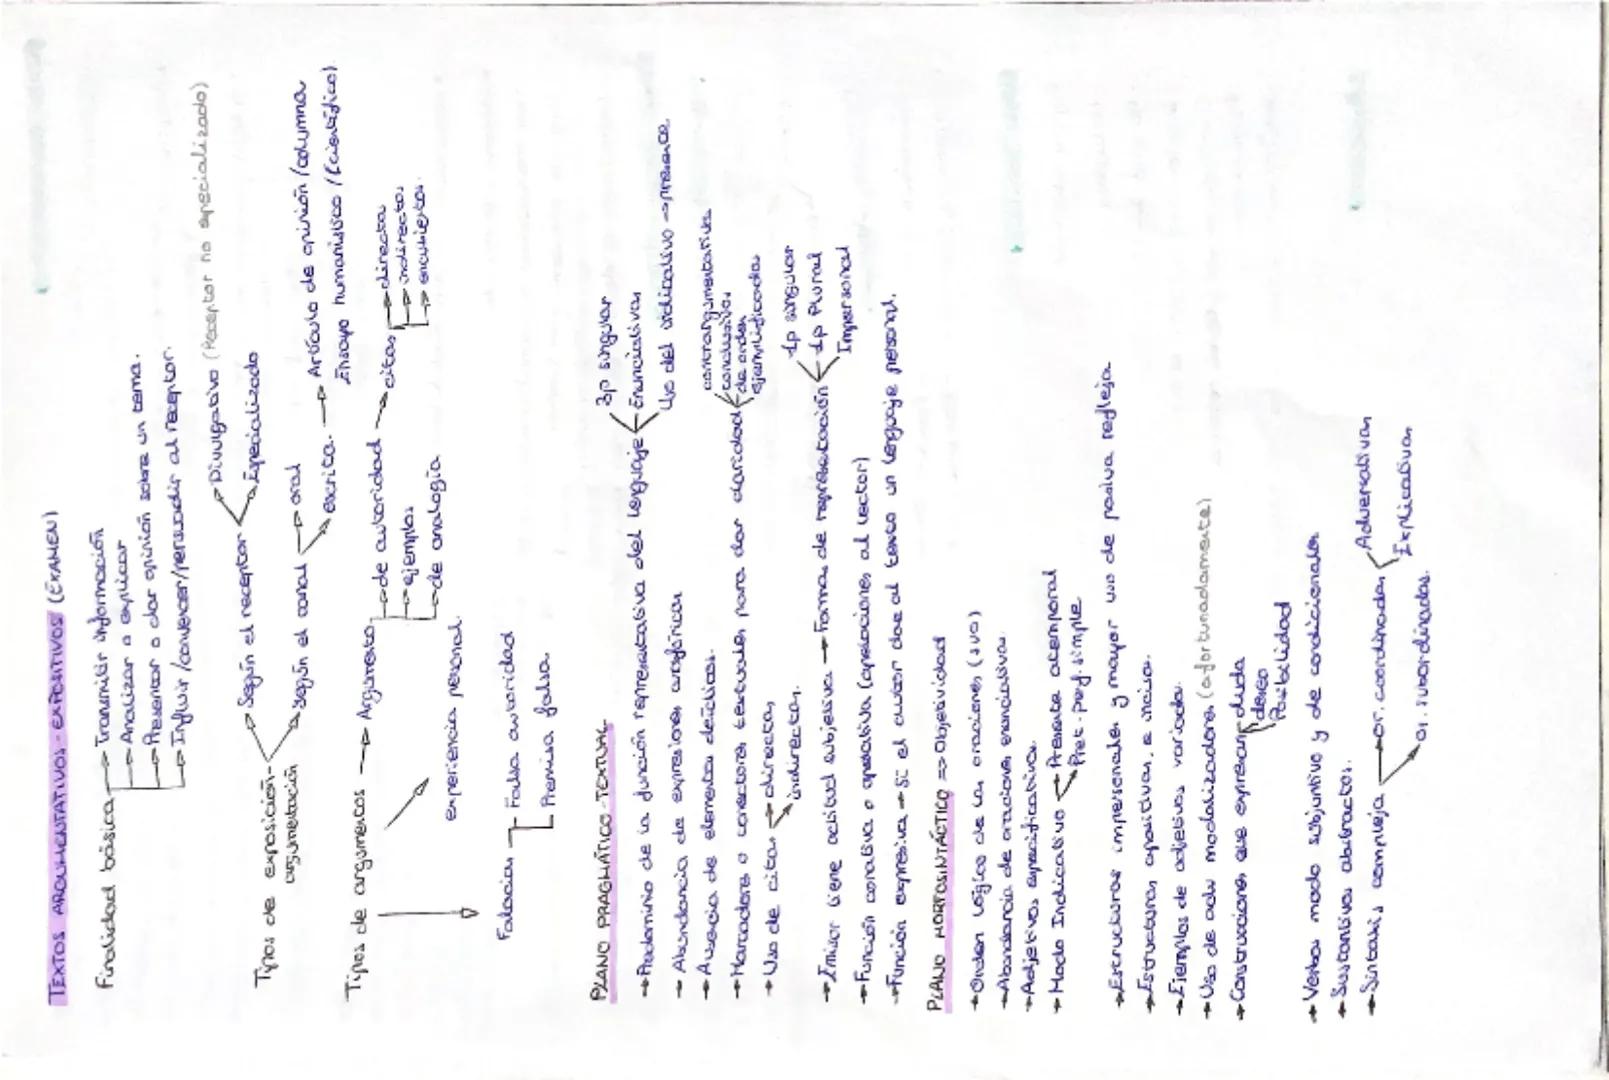 TEXTOS ARGUMENTATIVOS-EXPOSITIVOS (EXAMEN)
Finalidad básica → Transmitir información
→ Analizar o explicar
→ Presentar o dar opinión sobre un tema.
→ Influir/convencer/persuadir al receptor.
Tipos de exposición-argumentación
→ Según el receptor → Divulgativo (Receptor no especializado)
→ Especializado
→ Según el canal → oral
→ escrita. → Artículo de opinión/columna
Ensayo humanístico/(científico)
Tipos de argumentos → Argumento → de autoridad → citas → directas
→ indirectas
→ encubiertas.
→ ejemplos
→ de analogía
experiencia personal.
Falacias → Falsa autoridad
Premisa falsa
PLANO PRAGMÁTICO-TEXTUAL
→ Predominio de la función representativa del lenguaje → 3p singular
Enunciativas
Uso del indicativo → presente
→ Abundancia de expresiones anafóricas
→ Ausencia de elementos deícticos.
→ Marcadores o conectores textuales para dar claridad → contrargumentativos
conclusivos
de orden
ejemplificadores
→ Uso de citas → directas
indirectas.
→ Emisor tiene actitud subjetiva → Formas de representación → 1p singular
1p Plural
Impersonal
→ Función conativa o apelativa (apelaciones al lector)
→ Función expresiva → Si el autor dae al texto un lenguaje personal.
PLANO MORFOSINTÁCTICO => Objetividad
→ Orden lógico de las oraciones (SVO)
→ Abundancia de oraciones enunciativas.
→ Adjetivos especificativos.
→ Modo Indicativo → Presente atemporal
Pret. perf. simple
→ Estructuras impersonales y mayor uso de pasiva refleja
→ Estructuras apositivas, e incisos.
→ Ejemplos de adjetivos variados.
→ Uso de adv modalizadores (afortunadamente)
→ Construcciones que expresan duda
deseo
Posibilidad
→ Verbos modo subjuntivo y de condicionales
→ Sustantivos abstractos.
→ Sintaxis compleja → or. coordinadas → Adversativas
Explicativas
→ or. subordinadas.